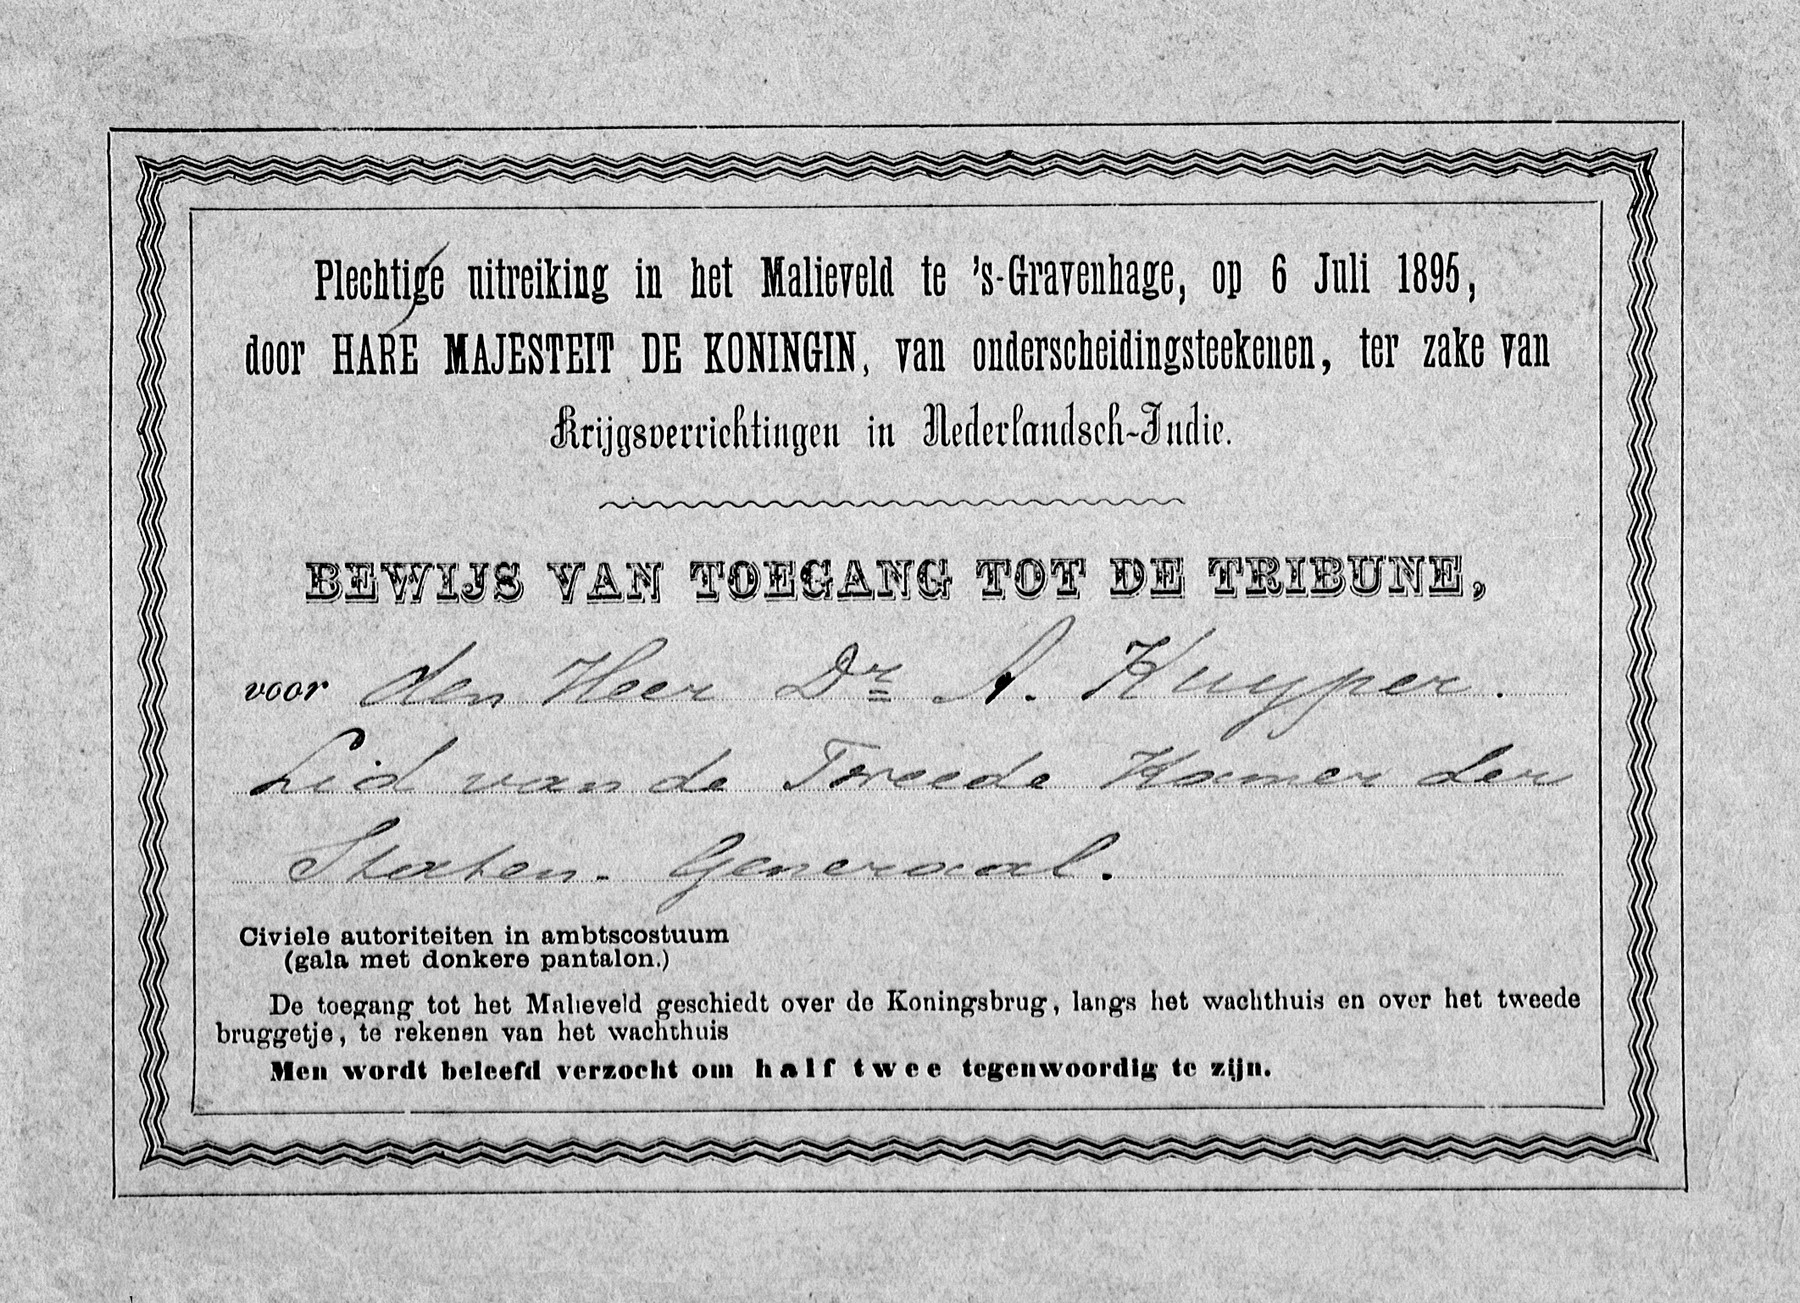 Plechtige uitreiking in het Malieveld te 's-Gravenhage, op 6 Juli 1895,
door HARE MAJESTEIT DE KONINGIN, van onderscheidingsteekenen, ter zake van
Krijgsverrichtingen in Nederlandsch-Indie.
BEWIJS VAN TOEGANG TOT DE TRIBUNE,
voor den Heer Dr A. Kuyper.
Lid van de Tweede Kamer der
Staten-Generaal.
Civiele autoriteiten in ambtscostuum
(gala met donkere pantalon.)
De toegang tot het Malieveld geschiedt over de Koningsbrug, langs het wachthuis en over het tweede
bruggetje, te rekenen van het wachthuis
Men wordt beleefd verzocht om half twee tegenwoordig te zijn.